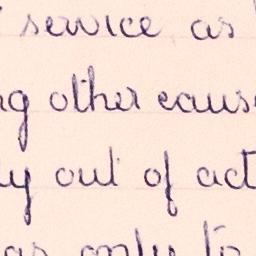 service as
ng other cause
ly out of act
as only to